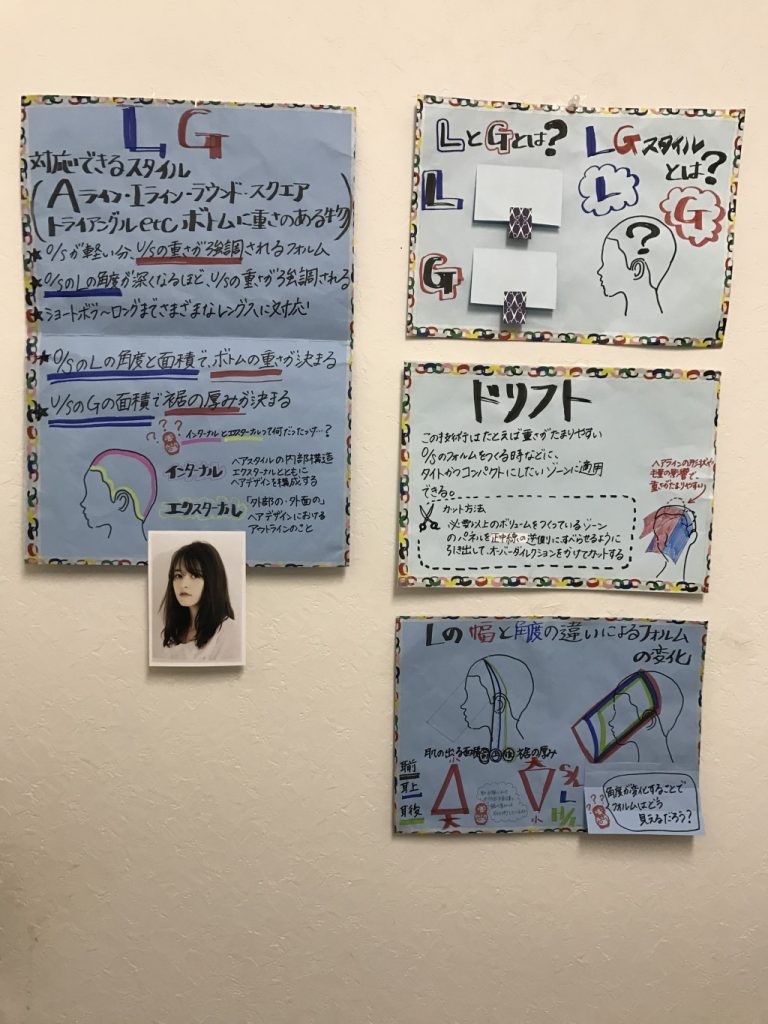 LG
対応できるスタイル
(Aライン・Iライン・ラウンド・スクエア
トライアングルetc ボトムに重さのある物)
★O/Sが軽い分、U/Sの重さが強調されるフォルム
★O/SのLの角度が深くなるほど、U/Sの重さが強調される
★ショートボブ〜ロングまでさまざまなレングスに対応
★O/SのLの角度と面積で、ボトムの重さが決まる
★U/SのGの面積で裾の厚みが決まる
???
インターナルとエクスターナルって何だったっけ…?
インターナル
ヘアスタイルの内部構造
エクスターナルとともに
ヘアデザインを構成する
エクスターナル
「外部の・外面の」
ヘアデザインにおける
アウトラインのこと
LとGとは?
L
G
LGスタイル
とは?
L
G
?
ドリフト
この技術はたとえば重さがたまりやすい
O/Sのフォルムをつくる時などに、
タイトかつコンパクトにしたいゾーンに適用
できる。
カット方法
必要以上のボリュームをつくっているゾーン
のパネルを正中線の逆側にすべらせるように
引き出して、オーバーダイレクションをかけてカットする
ヘアラインの形状や
毛量の影響で、
重さがたまりやすい
Lの幅と角度の違いによるフォルム
の変化
肌の出る面積
裾の厚み
耳前
耳上
耳後
小
大
大
小
L
???
角度が変化することで
フォルムはどう
見えるだろう?